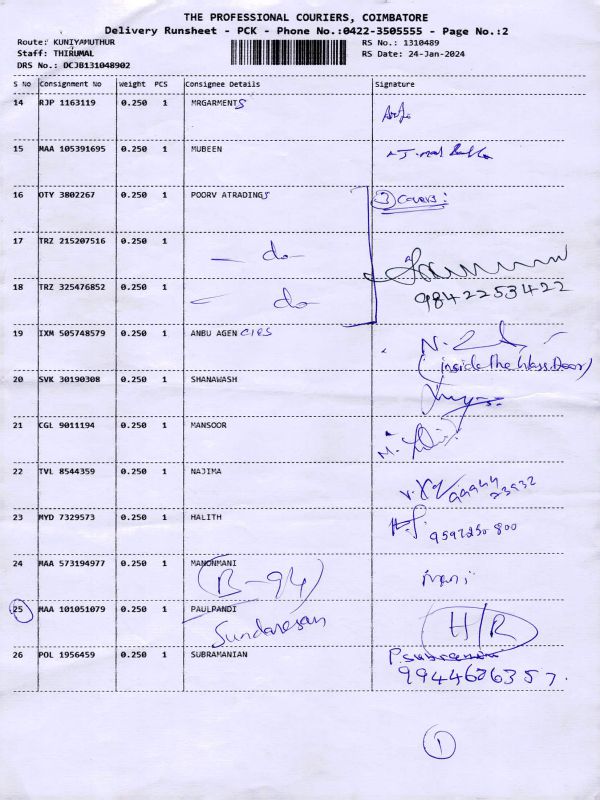 THE PROFESSIONAL COURIERS, COIMBATORE
Delivery Runsheet - PCK - Phone No.:0422-3505555 - Page No.:2
Route: KUNIYAMUTHUR RS No.: 1310489
Staff: THIRUMAL RS Date: 24-Jan-2024
DRS No.: DCJB131048902
S No Consignment No Weight PCS Consignee Details Signature
14 RJP 1163119 0.250 1 MRGARMENTS
15 MAA 105391695 0.250 1 MUBEEN
16 OTY 3802267 0.250 1 POORV ATRADINGS ③ Covers:
17 TRZ 215207516 0.250 1 — do —
18 TRZ 325476852 0.250 1 — do — 9842253422
19 IXM 505748579 0.250 1 ANBU AGENCIES
(inside the Glass Door)
20 SVK 30190308 0.250 1 SHANAWASH
21 CGL 9011194 0.250 1 MANSOOR
22 TVL 8544359 0.250 1 NAJIMA
23 MYD 7329573 0.250 1 HALITH 9597250800
24 MAA 573194977 0.250 1 MANONMANI mani
(B-94)
25 MAA 101051079 0.250 1 PAULPANDI H/R
Sundaresan
26 POL 1956459 0.250 1 SUBRAMANIAN P.subraman
9944626357.
①